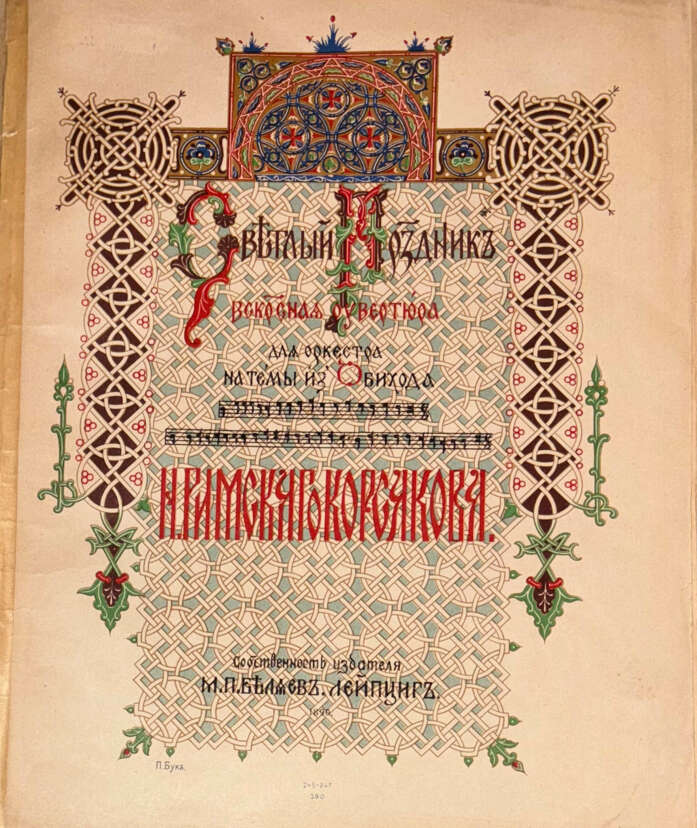 Свѣтлый Праздникъ
Вскрⷭ҇сная ѹвертюра
для оркестра
на темы изъ Обихода
Н. Римскагѡ Корсакова.
Собственность издателя
М. П. Бѣляевъ. Лейпцигъ.
1890.
П. Бука.